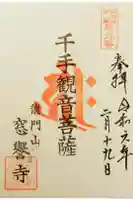 奉拝
令和六年
二月十九日
千手観音菩薩
門山
窓誉寺